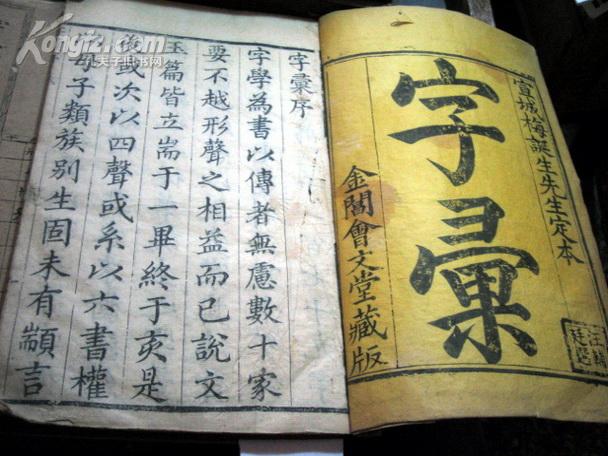 宣城梅誕生先生定本
字彚
金閶會文堂藏版
字彚序
字學為書以傳者無慮數十家
要不越形聲之相益而已說文
玉篇皆立耑于一畢終于亥是
後或次以四聲或系以六書權
母子類族別生固未有顓言
Kongfz.com
夫子旧书网